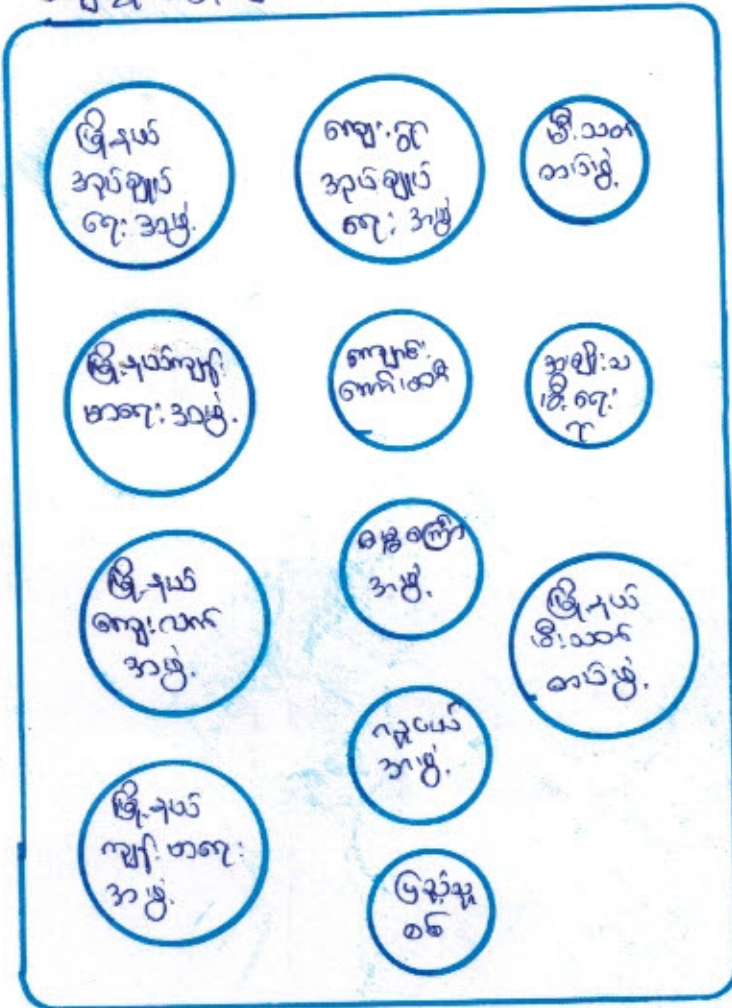 မြို့နယ်
အုပ်ချုပ်
ရေး အဖွဲ့
ကျေးရွာ
အုပ်ချုပ်
ရေး အဖွဲ့
မီးသတ်
တပ်ဖွဲ့
မြို့နယ်ကျန်း
မာရေး အဖွဲ့
ကျောင်း
ကော်မတီ
အမျိုးသ
မီးရေး
ရာ
မြို့နယ်
ကျေးလက်
အဖွဲ့
အဖွဲ့
မြို့နယ်
မီးသတ်
တပ်ဖွဲ့
လူငယ်
အဖွဲ့
မြို့နယ်
ကျန်းမာရေး
အဖွဲ့
ပြည်သူ့
စစ်